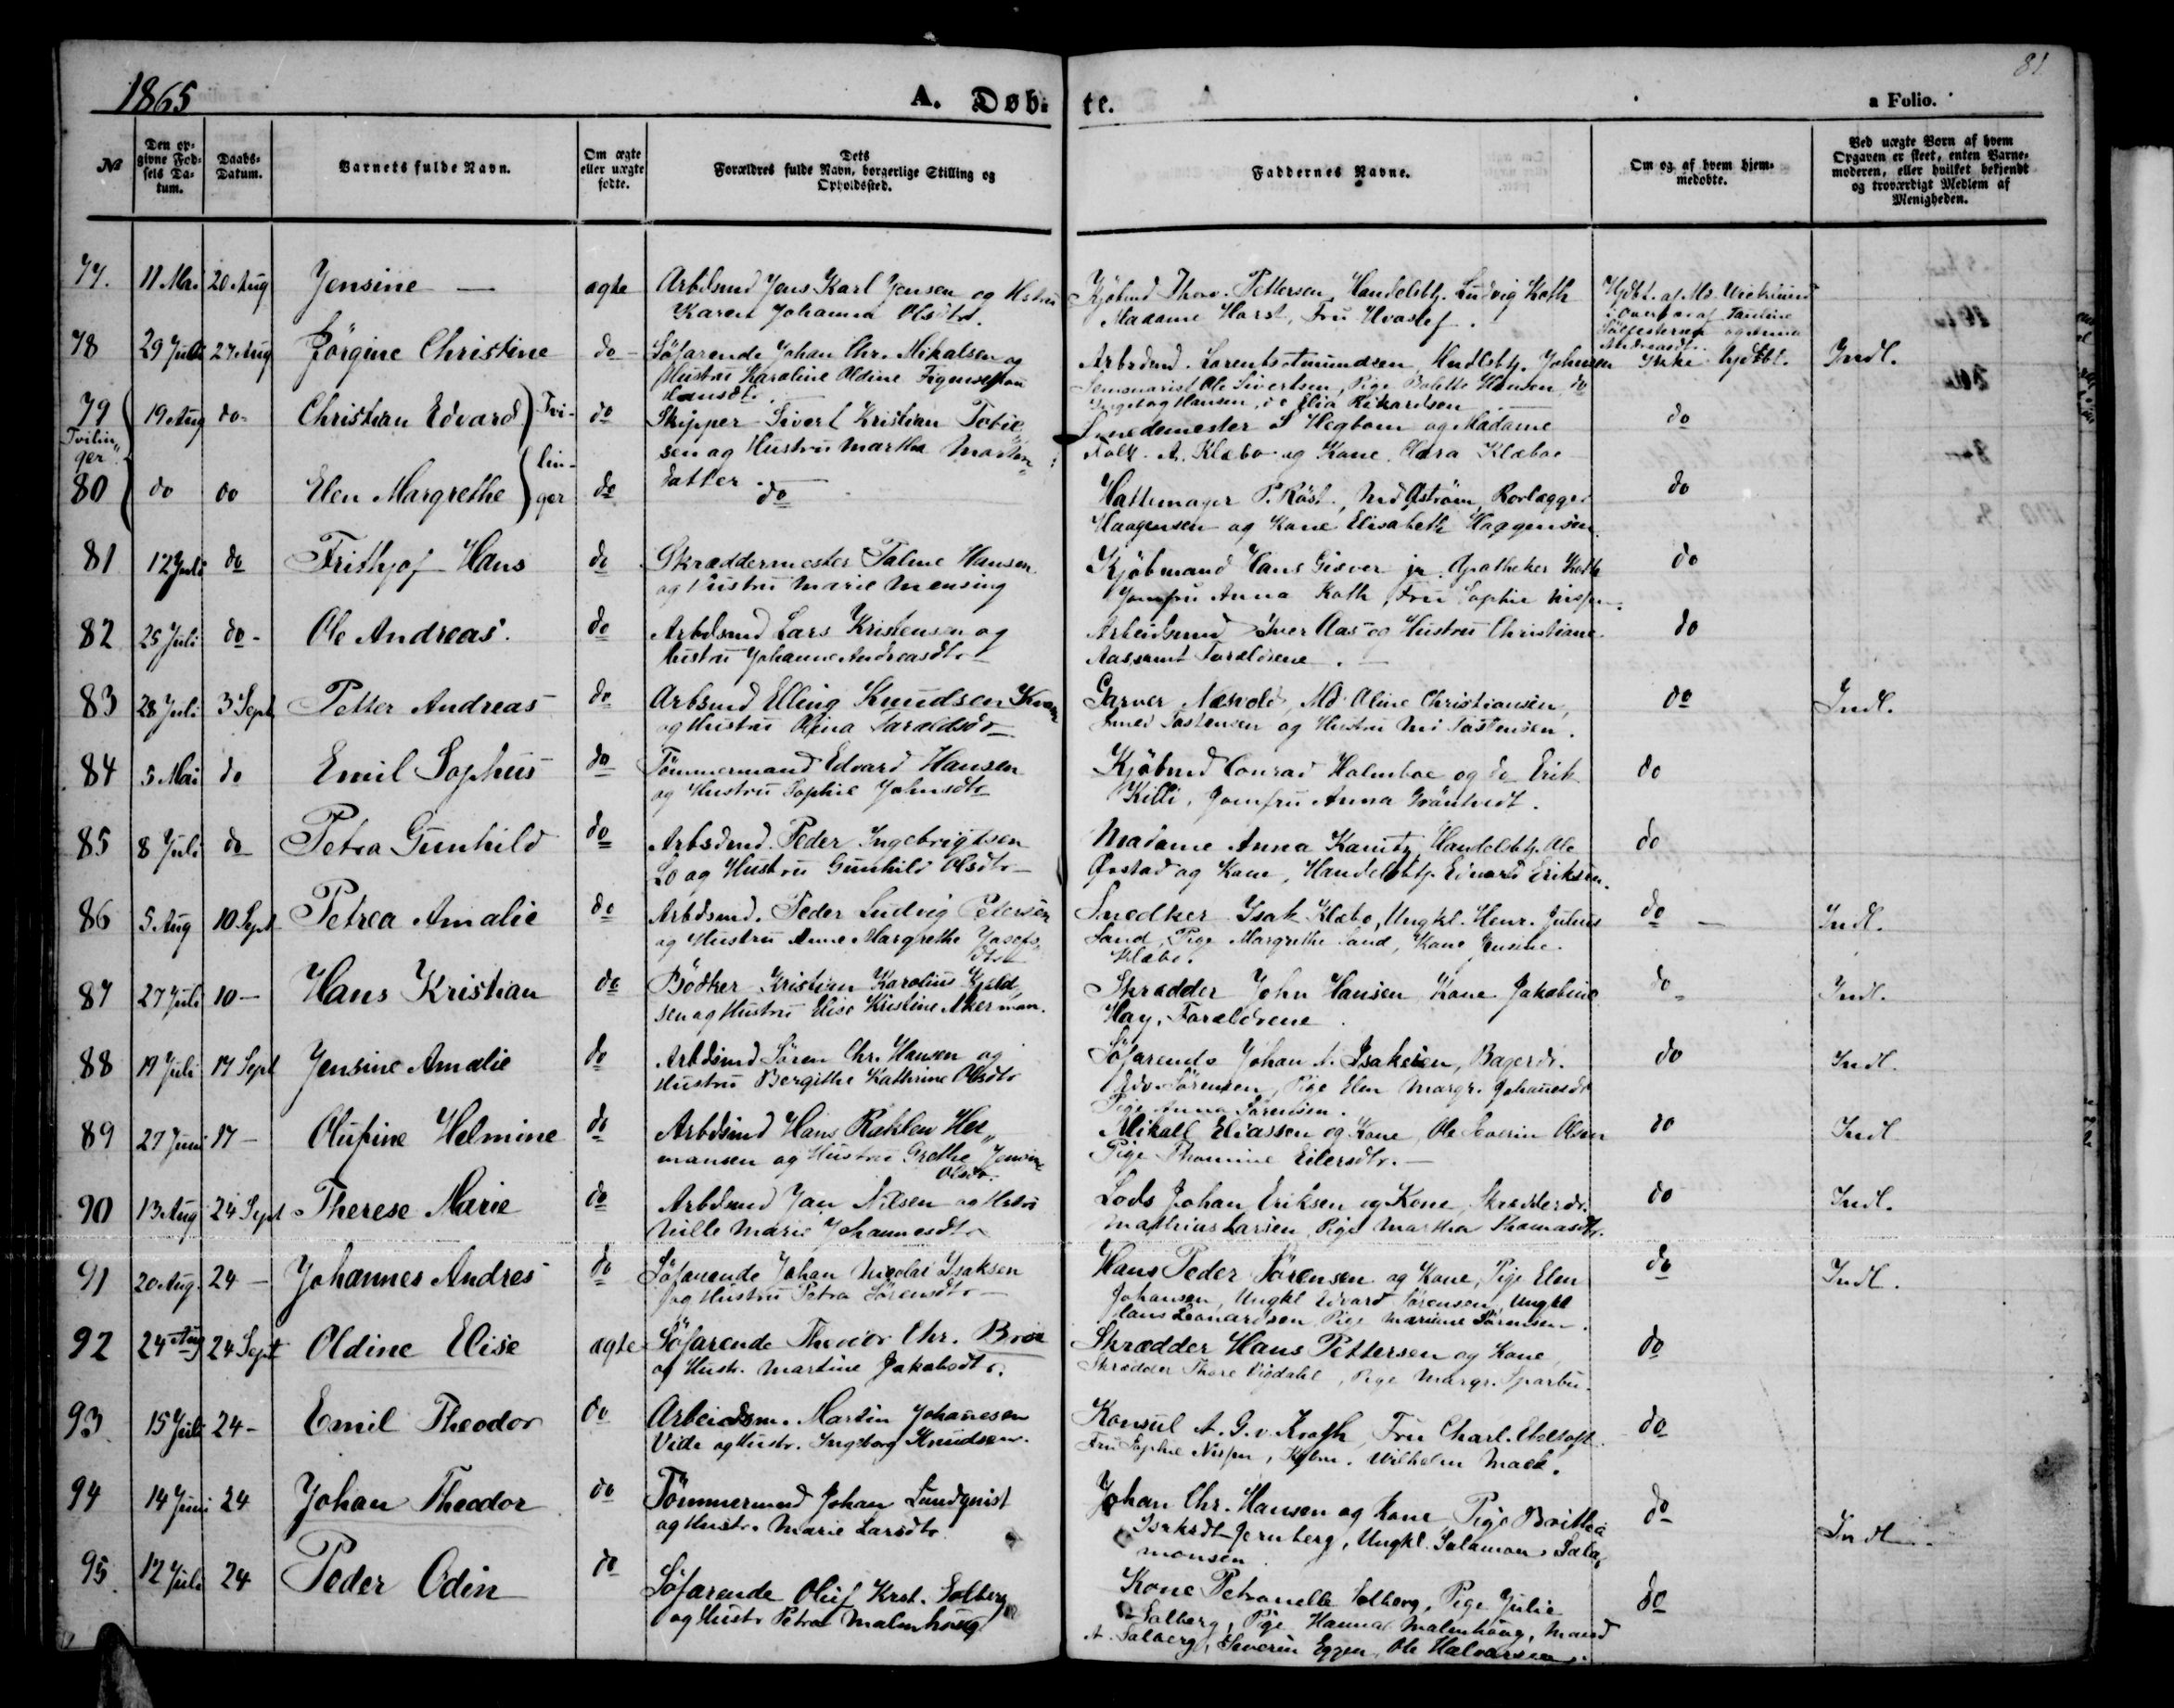 1865
A. Døb-
te.
a Folio.
81
№
Den op-
givne Fød-
sels Da-
tum.
Daabs-
Datum.
Barnets fulde Navn.
Om ægte
eller uægte
fødte.
Dets
Forældres fulde Navn, borgerlige Stilling og
Opholdssted.
Faddernes Navne.
Om og af hvem hjem-
medøbte.
Ved uægte Børn af hvem
Opgaven er skeet, enten Barne-
moderen, eller hvilket bekjendt
og troværdigt Medlem af
Menigheden.
77. 11 Mai 20 Aug Jensine — ægte Arbdsmd Jens Karl Jensen og Hstru
Karen Johanna Olsdtr.
Kjøbmd Thor. Pettersen, Handelsbtj. Ludvig Koth
Madame Horst, Fru Hvoslef.
Hjdbt. af Md.
78 29 Juli 27 Aug Jörgine Christine do Söfarende Johan Chr. Mikalsen og
Hustru Karoline Oldine
Hansdtr.
Arbedsmd. Lorents Amundsen, Hndlsbtj. Johnsen
Semenarist Ole Sivertsen, Pige Bolette Hansen, do
Hansen, do Elia Rikardsen
Ikke hjdbt. Indl.
79 Tvilin-
ger 19 Aug do Christian Edvard Tvi- do Skipper Sivert Kristian Tobia-
sen og Hustru Martha Morten-
datter.
Smedemester Hegbom og Madame
A. Klæbo og Kone Klæboe
do
80 do do Elen Margrethe lin-
ger do do
Hattemager P. Röst, Md Aström, Rorlægger
Haagensen og Kone Elisabeth Haagensen.
do
81 12 Juli do Frithjof Hans do Skræddermester Palme Hansen
og Hustru Marie Mensing
Kjöbmand Hans Giæver jr. Apotheker Koth
Jomfru Anna Koth, Fru Sophie
do
82 25 Juli do Ole Andreas. do Arbdsmd Lars Kristensen og
Hustru Johanne Andreasdtr
Arbeidsmd Iver Aas og Hustru Christiane
Aas samt Forældrene.
do
83 28 Juli 3 Sept Petter Andreas do Arbsmd Elling Knudsen
og Hustru Olina Haraldsdr
Garver Næsvold, Md. Oline Christiansen,
Smed Tostensen og Hustru Md Tostensen.
do Indl.
84 5 Mai do Emil Sophus do Tömmermand Edvard Hansen
og Hustru Sophie Johnsdtr
Kjöbmd Conrad Holmboe og do Erik
Killi, Jomfru Anna Gröntvedt.
do
85 8 Juli do Petra Gunhild do Arbdsmd. Peder Ingebrigtsen
Lo og Hustru Gunhild Olsdtr
Madame Anna Kanitz, Handelsbtj. Ole
Örstad og Kone, Handelsbtj. Edvard Eriksen.
do
86 5 Aug 10 Sept Petrea Amalie do Arbdsmd. Peder Ludvig Petersen
og Hustru Anne Margrethe Josefs-
dtr
Snedker Isak Klæbo, Ungkl. Henr. Julius
Sand, Pige Margrethe Sand, Kone Jensine
Klæbo.
do Indl.
87 27 Juli 10 — Hans Kristian do Bödker Kristian Karolius Kjeld-
sen og Hustru Elise Kristine Akerman.
Skrædder John Hansen, Kone Jakobine
Hay, Forældrene.
do Indl.
88 19 Juli 17 Sept Jensine Amalie do Arbdsmd Sören Chr. Hansen og
Hustru Bergithe Kathrine Olsdtr
Söfarende Johan N. Isaksen, Bagerdr.
Edv. Sörensen, Pige Elen Margr. Johanesdr
Pige Anna Sörensen.
do Indl.
89 27 Juni 17 — Olufine Helmine do Arbdsmd Hans Rahlew Her-
mansen og Hustru Grethe Jensine
Olsdtr.
Mikall Eliassen og Kone, Ole Severin Olsen
Pige Thomine Eilersdtr.
do Indl.
90 13 Aug 24 Sept Therese Marie do Arbdsmd Jan Nilsen og Hstru
Nille Marie Johannesdtr
Lods Johan Eriksen og Kone, Skrædderdr.
Mathias Larsen, Pige Martha Thomasdtr.
do Indl.
91 20 Aug. 24 — Johannes Andres do Söfarende Johan Nicolai Isaksen
og Hustru Petra Sörensdtr
Hans Peder Sörensen og Kone, Pige Elen
Johansen, Ungkl Edvard Sörensen, Ungkl
Hans Leonardsen, Pige Mariane Sörensen.
do Indl.
92 24 Aug 24 Sept Oldine Elise ægte Söfarende Theodor Chr. Broe
og Hustr. Martine Jakobsdtr.
Skrædder Hans Pettersen og Kone
Skrædder Thore Vigdahl, Pige Margr. Sparbu.
do
93 15 Juli 24 - Emil Theodor do Arbeidsm. Martin Johanesen
Vide og Hustr. Ingeborg Knudsen.
Konsul A. G. v. Krogh, Fru Charl. Ebeltoft
Fru Sophie, Kjbm. Wilhelm Mack.
do
94 14 Juni 24 Johan Theodor do Tömmermand Johan Lundqvist
og Hustr. Marie Larsdtr.
Johan Chr. Hansen og Kone, Pige Brithe
Isaksdt Jernberg, Ungkl. Salamon Sala-
monsen
do Indl.
95. 12 Juli 24 Peder Odin do Söfarende Oluf Krst. Solberg
og Hustr Petra Malmhoug
Kone Petronelle Solberg, Pige Julie
Solberg, Pige Hanna Malmhaug, Mand
A. Solberg, Severin Eggen, Ole Halvorsen.
do